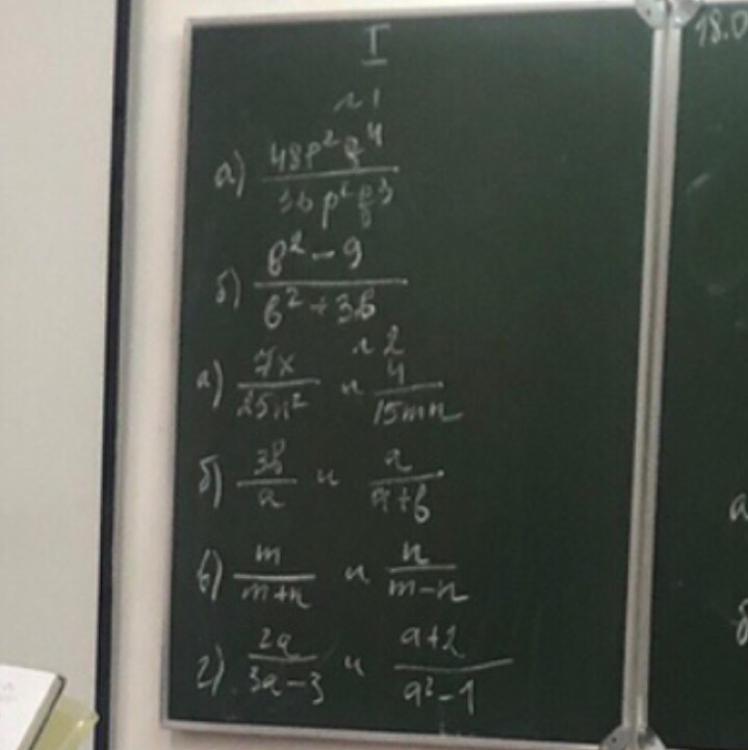 I
№1
а) 48p²q⁴ / 36p²q³
б) b²-9 / b²+3b
№2
а) 7x / 25n² и 4 / 15mn
б) 3b / a и a / a+b
в) m / m+n и n / m-n
г) 2a / 3a-3 и a+2 / a²-1
18.0
а
б